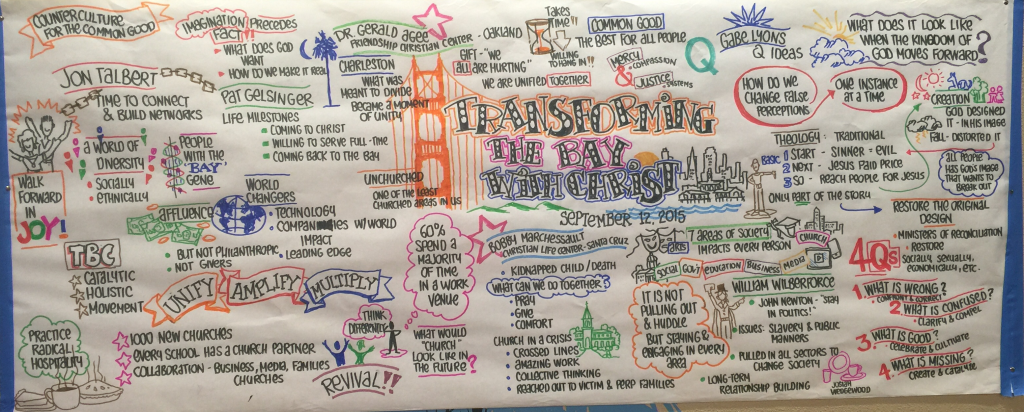 COUNTERCULTURE
FOR THE COMMON GOOD
IMAGINATION PRECEDES
FACT!
WHAT DOES GOD
WANT
HOW DO WE MAKE IT REAL
JON TALBERT
TIME TO CONNECT
& BUILD NETWORKS
WALK
FORWARD
IN
JOY!
A WORLD OF
DIVERSITY
SOCIALLY
ETHNICALLY
PEOPLE
WITH THE
"BAY"
GENE
AFFLUENCE
BUT NOT PHILANTHROPIC
NOT GIVERS
WORLD
CHANGERS
TECHNOLOGY
COMPANIES W/WORLD
IMPACT
LEADING EDGE
TBC
CATALYTIC
HOLISTIC
MOVEMENT
UNIFY
AMPLIFY
MULTIPLY
PRACTICE
RADICAL
HOSPITALITY
1000 NEW CHURCHES
EVERY SCHOOL HAS A CHURCH PARTNER
COLLABORATION - BUSINESS, MEDIA, FAMILIES
CHURCHES
THINK
DIFFERENTLY
REVIVAL!!
PAT GELSINGER
LIFE MILESTONES
COMING TO CHRIST
WILLING TO SERVE FULL-TIME
COMING BACK TO THE BAY
DR. GERALD AGEE
FRIENDSHIP CHRISTIAN CENTER - OAKLAND
CHARLESTON
WHAT WAS
MEANT TO DIVIDE
BECAME A MOMENT
OF UNITY
GIFT - "WE
ALL ARE HURTING"
WE ARE UNIFIED TOGETHER
TAKES
TIME!!
WILLING
TO HANG IN!!
COMMON GOOD
THE BEST FOR ALL PEOPLE
MERCY
COMPASSION
&
JUSTICE
SYSTEMS
UNCHURCHED
ONE OF THE LEAST
CHURCHED AREAS IN US
TRANSFORMING
THE BAY
WITH CHRIST
SEPTEMBER 12, 2015
60%
SPEND A
MAJORITY
OF TIME
IN A WORK
VENUE
WHAT WOULD
"CHURCH"
LOOK LIKE IN
THE FUTURE?
BOBBY MARCHESSAULT
CHRISTIAN LIFE CENTER - SANTA CRUZ
KIDNAPPED CHILD/DEATH
WHAT CAN WE DO TOGETHER?
PRAY
GIVE
COMFORT
CHURCH IN A CRISIS
CROSSED LINES
AMAZING WORK
COLLECTIVE THINKING
REACHED OUT TO VICTIM & PERP FAMILIES
Q
GABE LYONS
Q IDEAS
WHAT DOES IT LOOK LIKE
WHEN THE KINGDOM OF
GOD MOVES FORWARD?
HOW DO WE
CHANGE FALSE
PERCEPTIONS
ONE INSTANCE
AT A TIME
THEOLOGY - TRADITIONAL
BASIC
1 START - SINNER - EVIL
2 NEXT - JESUS PAID PRICE
3 SO - REACH PEOPLE FOR JESUS
ONLY PART OF THE STORY
CREATION
GOD DESIGNED
IT - IN HIS IMAGE
FALL - DISTORTED IT
ALL PEOPLE
HAS GOD'S IMAGE
THAT WANTS TO
BREAK OUT
RESTORE THE ORIGINAL
DESIGN
MINISTERS OF RECONCILIATION
RESTORE
SOCIALLY, SEXUALLY,
ECONOMICALLY, ETC.
7 AREAS OF SOCIETY
IMPACTS EVERY PERSON
ARTS
CHURCH
SOCIAL
GOV'T
EDUCATION
BUSINESS
MEDIA
IT IS NOT
PULLING OUT
& HUDDLE
BUT STAYING &
ENGAGING IN EVERY
AREA
WILLIAM WILBERFORCE
JOHN NEWTON - "STAY
IN POLITICS!"
ISSUES: SLAVERY & PUBLIC
MANNERS
PULLED IN ALL SECTORS TO
CHANGE SOCIETY
LONG-TERM
RELATIONSHIP BUILDING
JOSIAH
WEDGEWOOD
4Qs
1. WHAT IS WRONG?
CONFRONT & CORRECT
2. WHAT IS CONFUSED?
CLARIFY & COMPEL
3. WHAT IS GOOD?
CELEBRATE & CULTIVATE
4. WHAT IS MISSING?
CREATE & CATALYZE